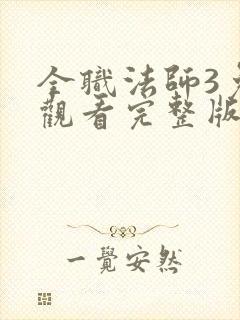 全職法師3免
觀看完整版
一覺安然